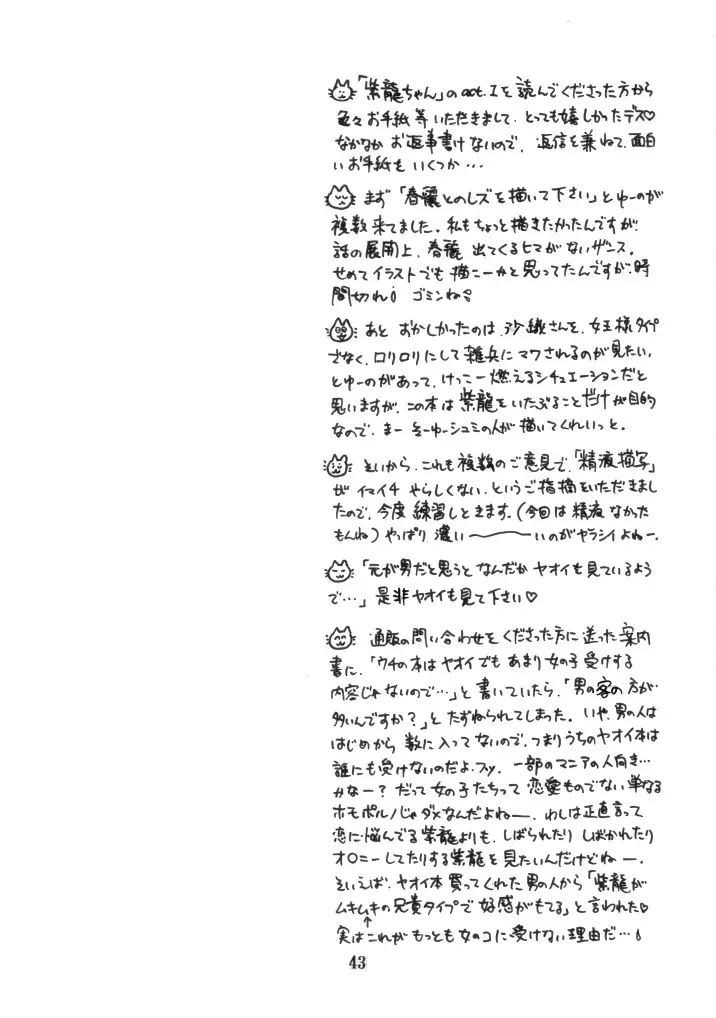 「紫龍ちゃん」のact.Iを読んでくださった方から
色々お手紙等いただきまして、とっても嬉しかったデス♡
なかなかお返事書けないので、返信を兼ねて、面白
いお手紙をいくつか…
まず「春麗とのレズを描いて下さい」とゆーのが
複数来てました。私もちょっと描きたかったんですが、
話の展開上、春麗出てくるヒマがないザンス。
せめてイラストでも描こーかと思ってたんですが、時
間切れ! ゴミンね
あとおかしかったのは、沙織さんを、女王様タイプ
でなく、ロリロリにして雑兵にマワされるのが見たい、
とゆーのがあって、けっこー燃えるシチュエーションだと
思いますが、この本は紫龍をいたぶることだけが目的
なので、まーそーゆーシュミの人が描いてくれいっと。
そいから、これも複数のご意見で、「精液描写」
がイマイチやらしくない、というご指摘をいただきまし
たので、今度練習しときます。(今回は精液なかった
もんね)やっぱり濃い〜〜いのがヤラシイよねー。
「元が男だと思うとなんだかヤオイも見ているよう
で…」是非ヤオイも見て下さい♡
通販の問い合わせをくださった方に送った案内
書に、「ウチの本はヤオイでもあまり女の子受けする
内容じゃないので…」と書いていたら、「男の客の方が
多いんですか?」とたずねられてしまった。いや、男の人は
はじめから数に入ってないので、つまりうちのヤオイ本は
誰にも受けないのだよ、フッ。一部のマニアの人向き…
かなー? だって女の子たちって恋愛ものでない単なる
ホモポルノじゃダメなんだよねー。わしは正直言って
恋に悩んでる紫龍よりも、しばられたりしばかれたり
オ○ニーしてたりする紫龍を見たいんだけどねー。
そいえば、ヤオイ本買ってくれた男の人から「紫龍が
ムキムキの兄貴タイプで好感がもてる」と言われた♡
↑
実はこれがもっとも女のコに受けない理由だ…!
43